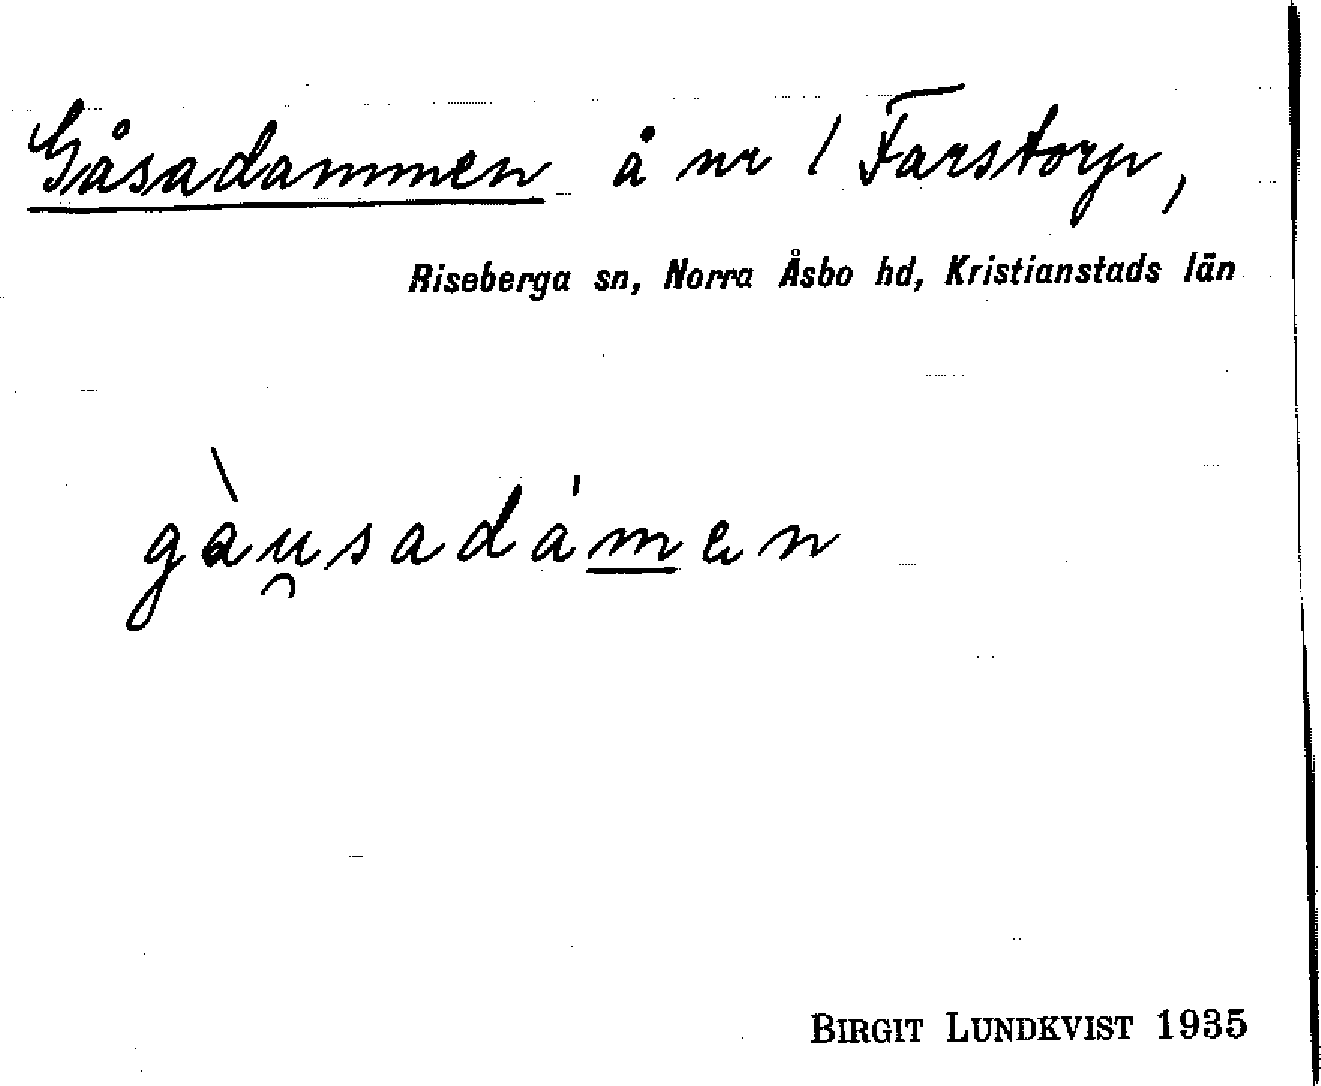 Gåsadammen å nr 1 Farstorp,
Riseberga sn, Norra Åsbo hd, Kristianstads län
gàu̯sadám̲en
BIRGIT LUNDKVIST 1935